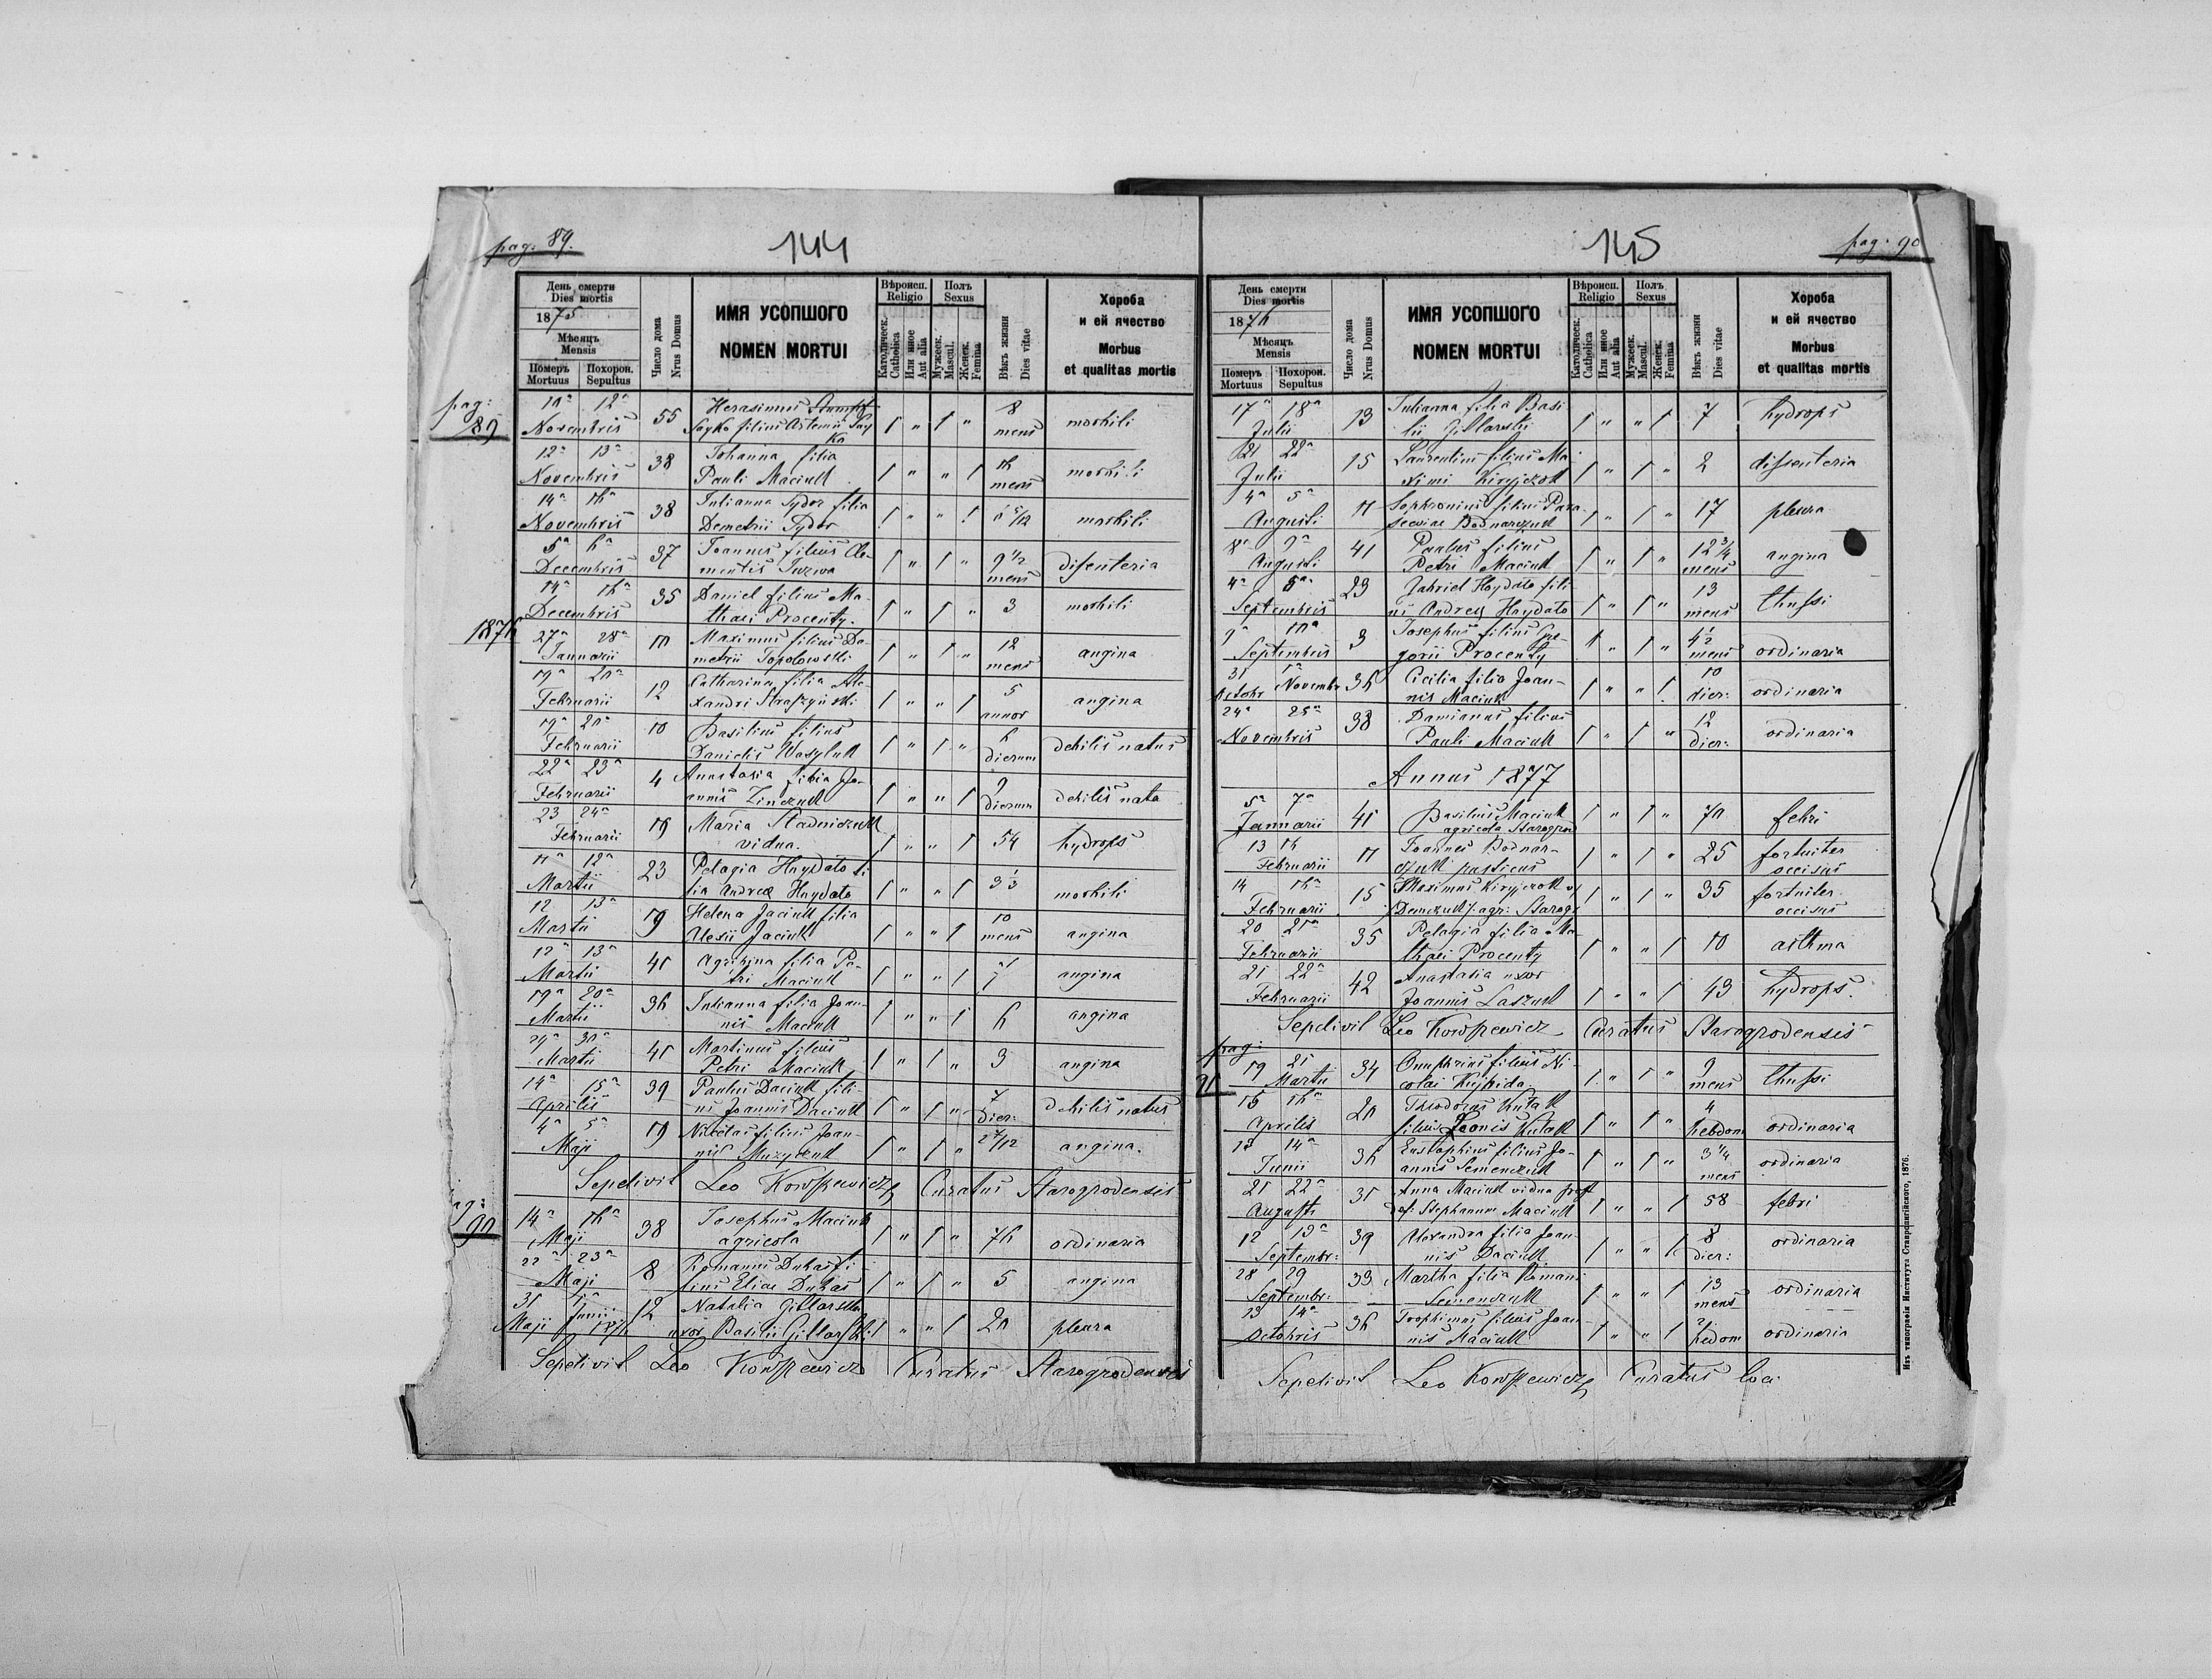 pag: 89.
144
День смерти
Dies mortis
1875
Мѣсяцъ
Mensis
Померъ Mortuus
Похорон. Sepultus
Число дома
Nrus Domus
ИМЯ УСОПШОГО
NOMEN MORTUI
Вѣроисп.
Religio
Католическ.
Catholica
Или иное
Aut alia
Полъ
Sexus
Мужеск.
Mascul.
Женск.
Femina
Вѣкъ жизни
Dies vitae
Хороба
и ей ячество
Morbus
et qualitas mortis
pag: 89
12ª Novembris 55 Herasimus
filius 1 " 1 " 8 mens morbili
12ª 13ª Novembris 38 Johanna filia
Pauli Maciuk 1 " " 1 mens morbili
14ª Novembris 38 Julianna Tydor filia
Demetrii Tydor 1 " " 1 morbili
5ª 6ª Decembris 37 Joannes filius Cle-
mentis 1 " 1 " 9 1/2 mens disenteria
14ª Decembris 35 Daniel filius Ma-
thaei Procenty. 1 " 1 " 3 morbili
1876
27ª 28ª Januarii 10 Maximus filius De-
metrii Topolowski 1 " 1 " 12 mens angina
19ª 20ª Februarii 12 Catharina filia Ale-
xandri 1 " " 1 5 annor angina
19ª 20ª Februarii 10 Basilius filius
Danielis Wasyluk 1 " 1 " 6 dierum debilis natus
22ª 23ª Februarii 4 Anastasia filia Jo-
annis Zinczuk 1 " " 1 9 dierum debilis nata
23 24ª Februarii 19 Maria Stadniczuk
vidua. 1 " " 1 54 hydrops
11ª 12ª Martii 23 Pelagia Haydalo fi-
lia Andreae Haydalo 1 " " 1 3 1/3 morbili
12 13ª Martii 19 Helena Jaciuk filia
Alexii Jaciuk 1 " " 1 10 mens angina
12ª 13ª Martii 41 Agripina filia Pe-
tri Maciuk 1 " " 1 angina
19ª 20ª Martii 36 Julianna filia Joan-
nis Maciuk 1 " " 1 6 angina
29ª 30ª Martii 41 Martinus filius
Petri Maciuk 1 " 1 " 3 angina
14ª 15ª Aprilis 39 Paulus Daciuk fili-
us Joannis Daciuk 1 " 1 " 7 dier: debilis natus
4ª 5ª Maji 19 Nicetas filius Joan-
nis Muzyczuk 1 " 1 " angina.
Sepelivit Leo Curatus Starogrodensis
pag: 90
14ª 16ª Maji 38 Josephus Maciuk
agricola 1 " 1 " 76 ordinaria
22ª 23ª Maji 8 Romanus Dukas fi-
lius Eliae Dukas 1 " 1 " 5 angina
31 Maji 1ª Junii 12 Natalia Gillarska
uxor Basilii Gillarski 1 " " 1 20 pleura
Sepelivit Leo Curatus Starogrodensis
145
pag: 90
День смерти
Dies mortis
1876
Мѣсяцъ
Mensis
Померъ Mortuus
Похорон. Sepultus
Число дома
Nrus Domus
ИМЯ УСОПШОГО
NOMEN MORTUI
Вѣроисп.
Religio
Католическ.
Catholica
Или иное
Aut alia
Полъ
Sexus
Мужеск.
Mascul.
Женск.
Femina
Вѣкъ жизни
Dies vitae
Хороба
и ей ячество
Morbus
et qualitas mortis
17ª 18ª Julii 13 Julianna filia Basi-
lii Gillarski 1 " " 1 7 hydrops
21 22ª Julii 15 Laurentius filius Ma-
ximi Kiryczok 1 " 1 " 2 dissenteria
4ª 5ª Augusti 11 Sophronius filius Para-
sceviae Bodnarczuk 1 " 1 " 17 pleura
8ª 9ª Augusti 41 Paulus filius
Petri Maciuk 1 " 1 " 12 3/4 mens angina
4ª 5ª Septembris 23 Gabriel Haydalo fili-
us Andreae Haydalo 1 " 1 " 13 mens thussi
9ª 10ª Septembris 3 Josephus filius Gre-
gorii Procenty 1 " 1 " 4 1/2 mens ordinaria
31 Octobr 1ª Novembr 36 Cicilia filia Joan-
nis Maciuk 1 " " 1 10 dier: ordinaria
24ª 25ª Novembris 38 Damianus filius
Pauli Maciuk 1 " 1 " 12 dier: ordinaria
Annus 1877
5ª 7ª Januarii 41 Basilius Maciuk
agricola Starogrod 1 " 1 " 70 febri
13 Februarii 11 Joannes Bodnar-
czuk rusticus 1 " 1 " 25 fortuiter occisus
14 16ª Februarii 15 Maximus Kiryczok
agr: Starogr 1 " 1 " 35 fortuiter occisus
20 21ª Februarii 35 Pelagia filia Ma-
thaei Procenty 1 " " 1 10 asthma
21 22ª Februarii 42 Anastasia uxor
Joannis Laszuk 1 " " 1 43 hydrops.
Sepelivit Leo Curatus Starogrodensis
pag: 91
19 21 Martii 34 Onuphrius filius Ni-
colai 1 " 1 " 9 mens thussi
15 16ª Aprilis 20 Theodorus Kutak
filius Leonis Kutak 1 " 1 " 4 hebdom ordinaria
13 14ª Junii 36 Eustaphius filius Jo-
annis Semenczuk 1 " 1 " 3 1/4 mens ordinaria
21 22ª Augusti 31 Anna Maciuk vidua post
def: Stephanum Maciuk 1 " " 1 58 febri
12 13ª Septembr: 39 Alexandra filia Joan-
nis Daciuk 1 " " 1 8 dier: ordinaria
28 29 Septembr: 33 Martha filia Romani
Semenczuk 1 " " 1 13 mens ordinaria
13 14ª Octobris 36 Trophimus filius Joan-
nis Maciuk 1 " " 1 hedom ordinaria
Sepelivit Leo Curatus loci
Изъ типографіи Института Ставропигійского, 1876.